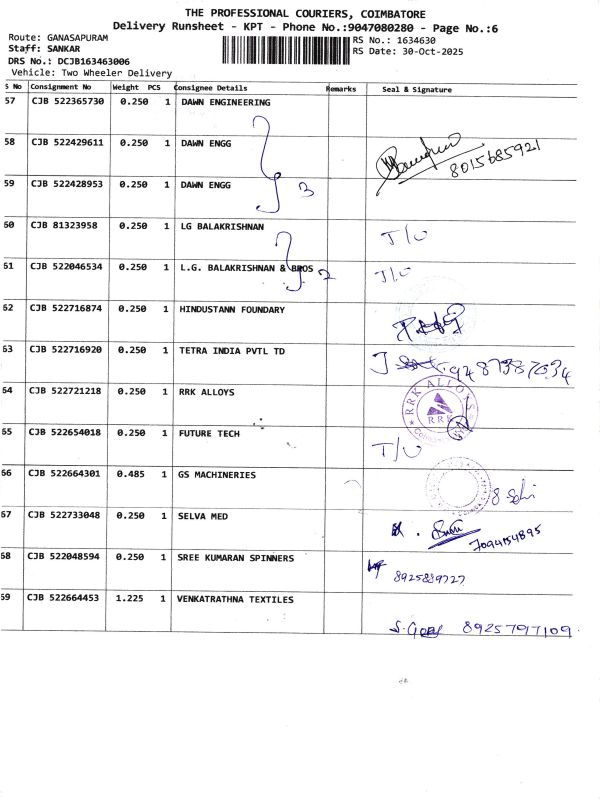 THE PROFESSIONAL COURIERS, COIMBATORE
Delivery Runsheet - KPT - Phone No.:9047080280 - Page No.:6
Route: GANASAPURAM
RS No.: 1634630
Staff: SANKAR
RS Date: 30-Oct-2025
DRS No.: DCJB163463006
Vehicle: Two Wheeler Delivery
S No Consignment No Weight PCS Consignee Details Remarks Seal & Signature
57 CJB 522365730 0.250 1 DAWN ENGINEERING
58 CJB 522429611 0.250 1 DAWN ENGG
8015685921
59 CJB 522428953 0.250 1 DAWN ENGG
3
60 CJB 81323958 0.250 1 LG BALAKRISHNAN T/U
61 CJB 522046534 0.250 1 L.G. BALAKRISHNAN & BROS 2 T/U
62 CJB 522716874 0.250 1 HINDUSTANN FOUNDARY
63 CJB 522716920 0.250 1 TETRA INDIA PVTL TD
64 CJB 522721218 0.250 1 RRK ALLOYS RRK ALLOYS RRK
65 CJB 522654018 0.250 1 FUTURE TECH T/U
66 CJB 522664301 0.485 1 GS MACHINERIES
67 CJB 522733048 0.250 1 SELVA MED
7094154895
68 CJB 522048594 0.250 1 SREE KUMARAN SPINNERS
69 CJB 522664453 1.225 1 VENKATRATHNA TEXTILES
8925797109